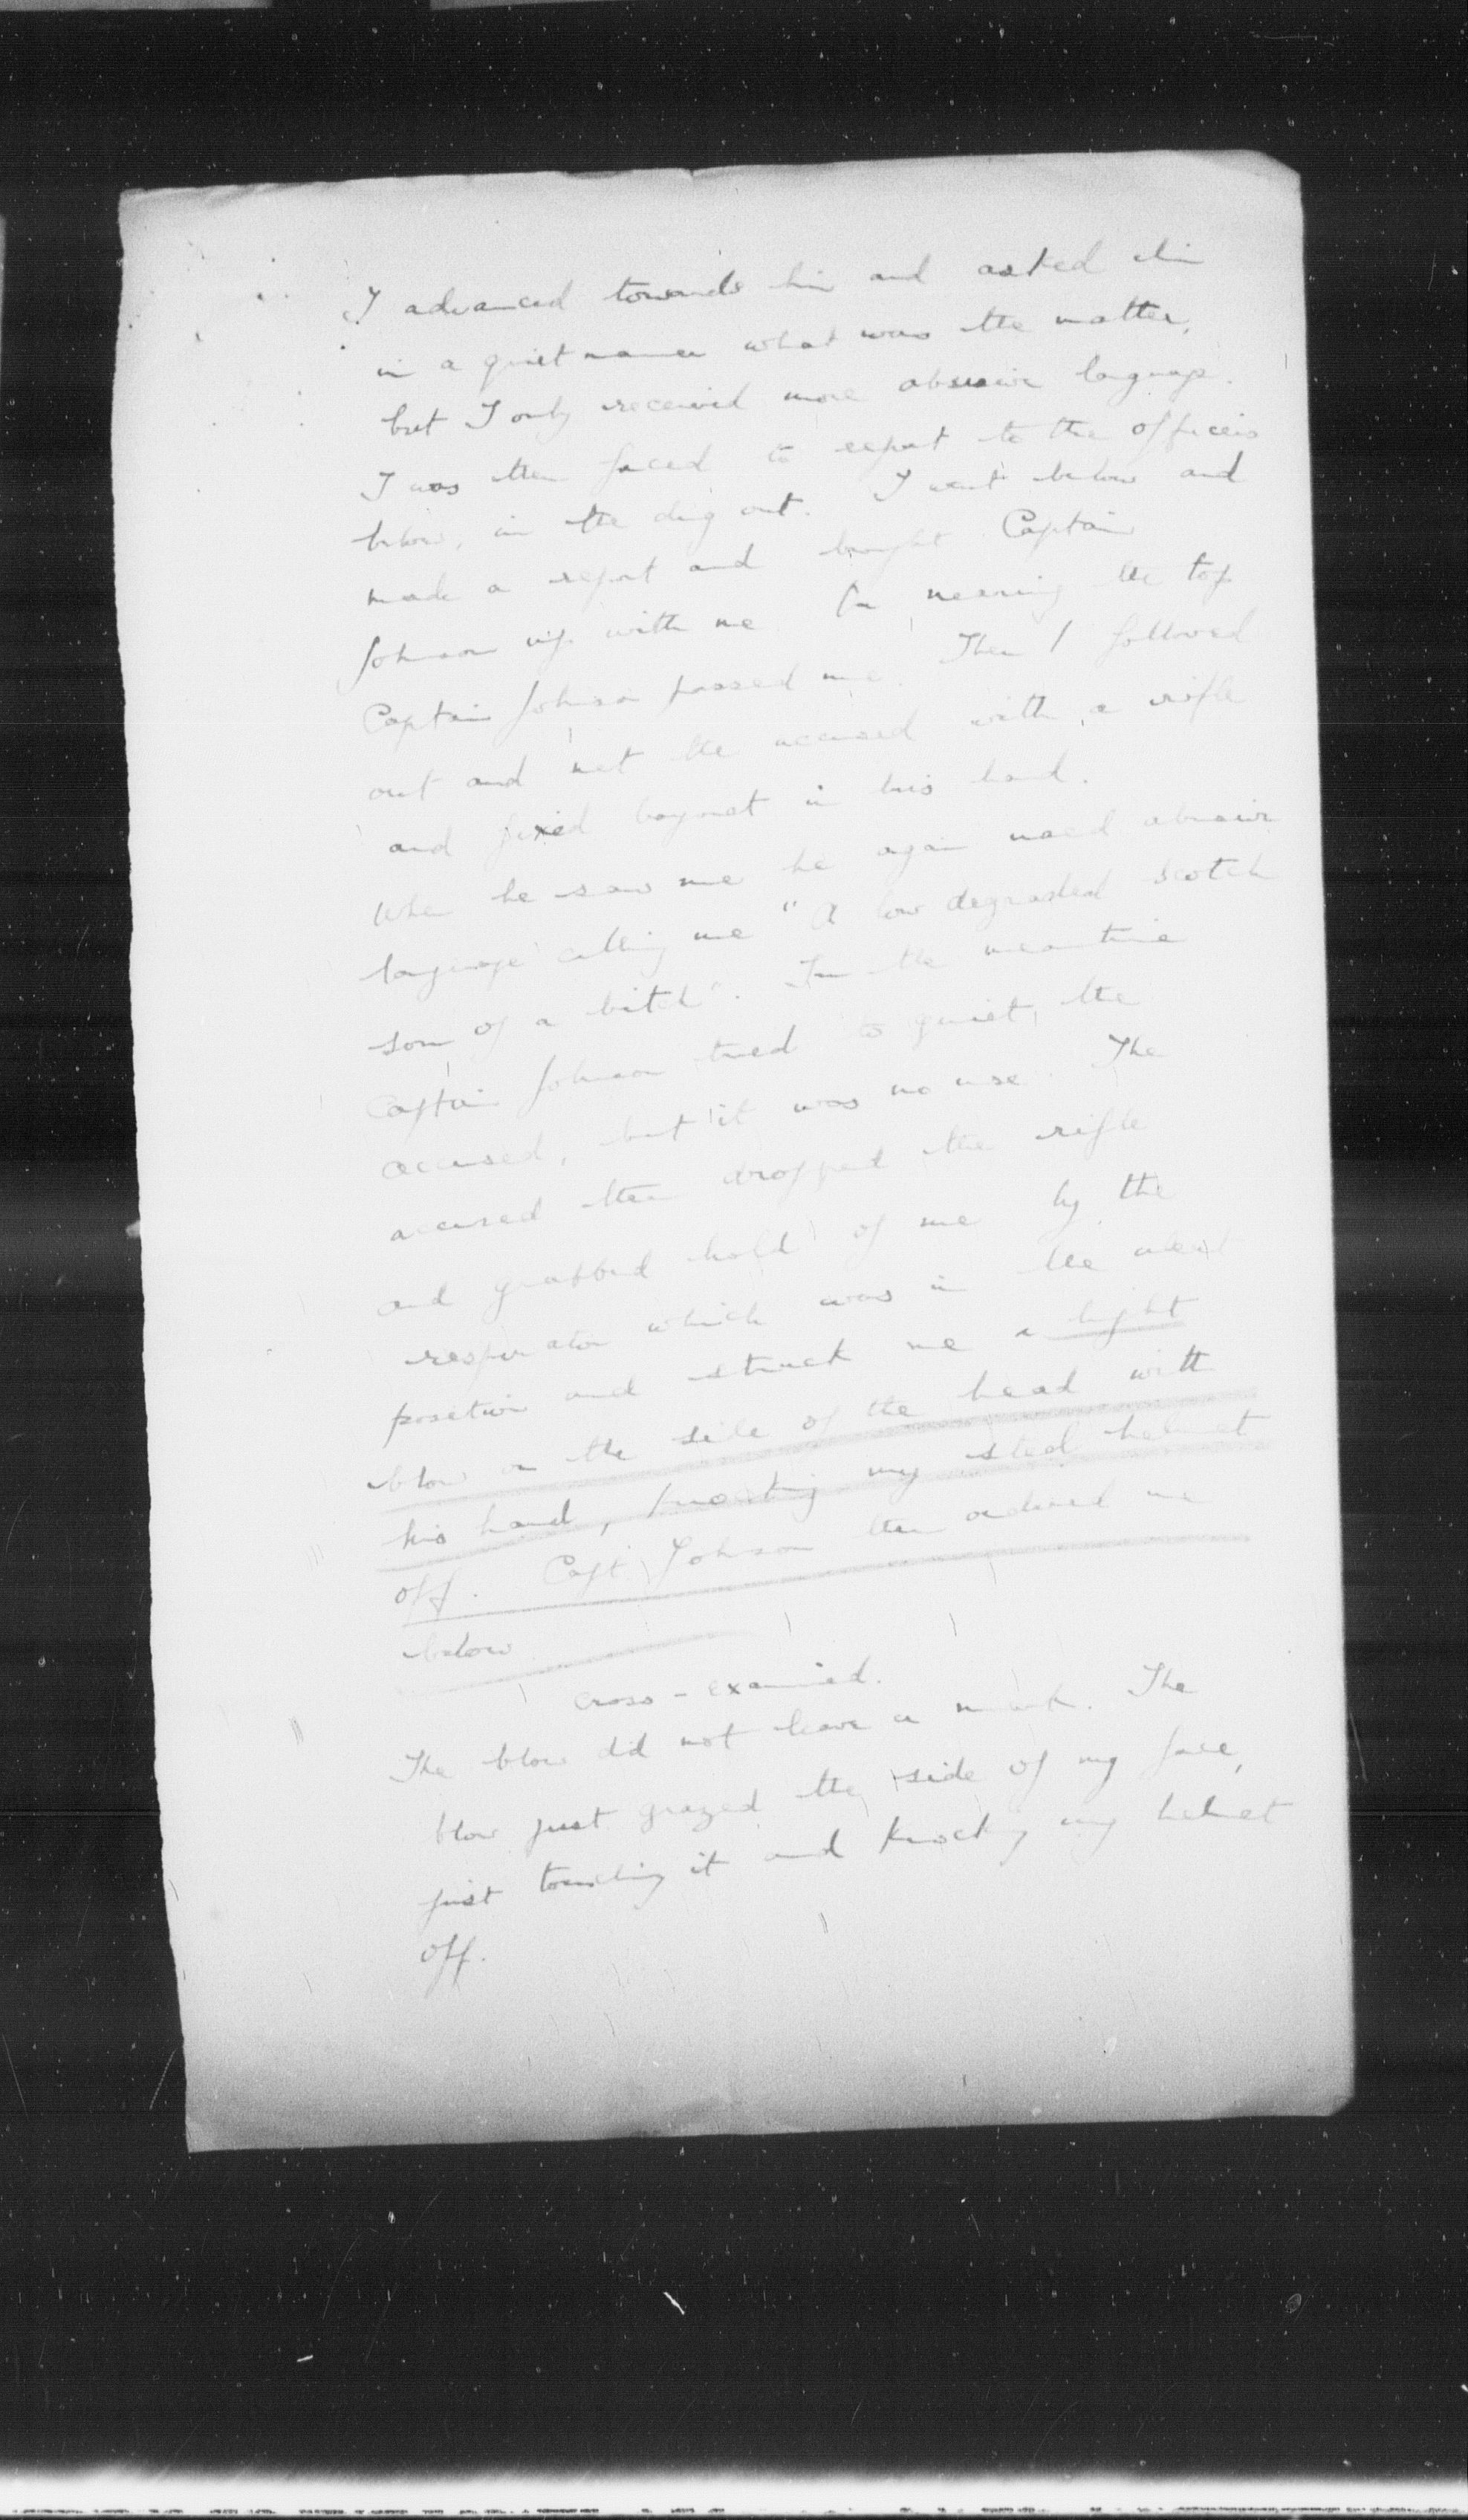 I advanced towards him and asked him
in a quiet manner what was the matter,
but I only received more abusive language.
I was then forced to report to the officers
below, in the dug out. I went below and
made a report and brought Captain
Johnson up with me. On nearing the top
Captain Johnson passed me. Then I followed
out and met the accused with a rifle
and fixed bayonet in his hand.
When he saw me he again used abusive
language calling me "A low degraded Scotch
son of a bitch". In the meantime
Captain Johnson tried to quiet the
accused, but it was no use. The
accused then dropped the rifle
and grabbed hold of me by the
respirator which was in the alert
position and struck me a light
blow on the side of the head with
his hand, knocking my steel helmet
off. Capt. Johnson then ordered me
below
cross-examined.
The blow did not leave a mark. The
blow just grazed the side of my face,
just touching it and knocking my helmet
off.